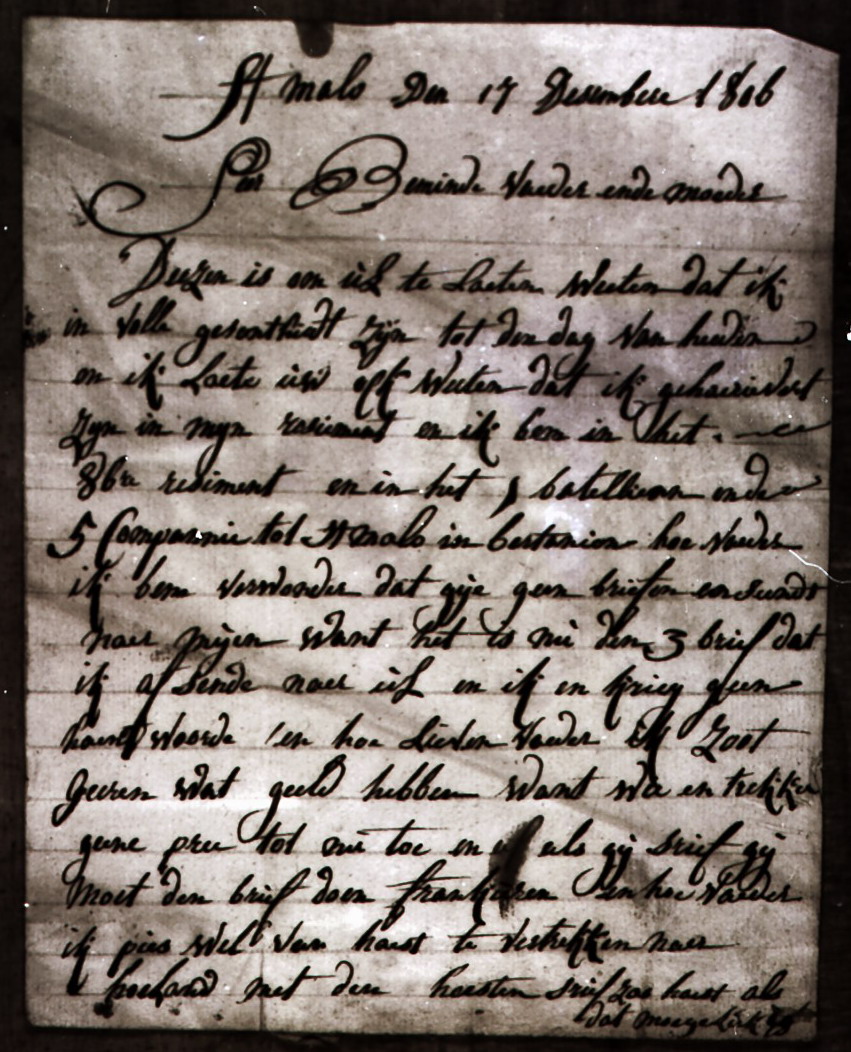 St malo Den 17 Desember 1806
Seer Beminde vaeder ende moeder
Deezen is om ul te Laeten Weeten dat ik
in volle gesonthijdt zijn tot den dag van heeden
en ik Laete uw ook Weeten dat ik
zyn in myn resiement en ik ben in het
8ste resiment en in het 1 batellieon ende
5 Compannie tot St malo in bertanien hoe vaeder
ik bem verwonder dat gije geen briefen en sendt
naer mijen want het is nu den 3 brief dat
ik af sende naer ul en ik en krieg geen
hantwoorde en hoe Lieven vaeder ik zoot
geeren wat geeld hebben want we en trekken
geene pree tot nu toe en als gij srief gij
moet den brief doen frankeren en hoe vaeder
ik pies wel van haest te vertrekken naer
hoeland met den heersten srief zoo haest als
dat moegelick is